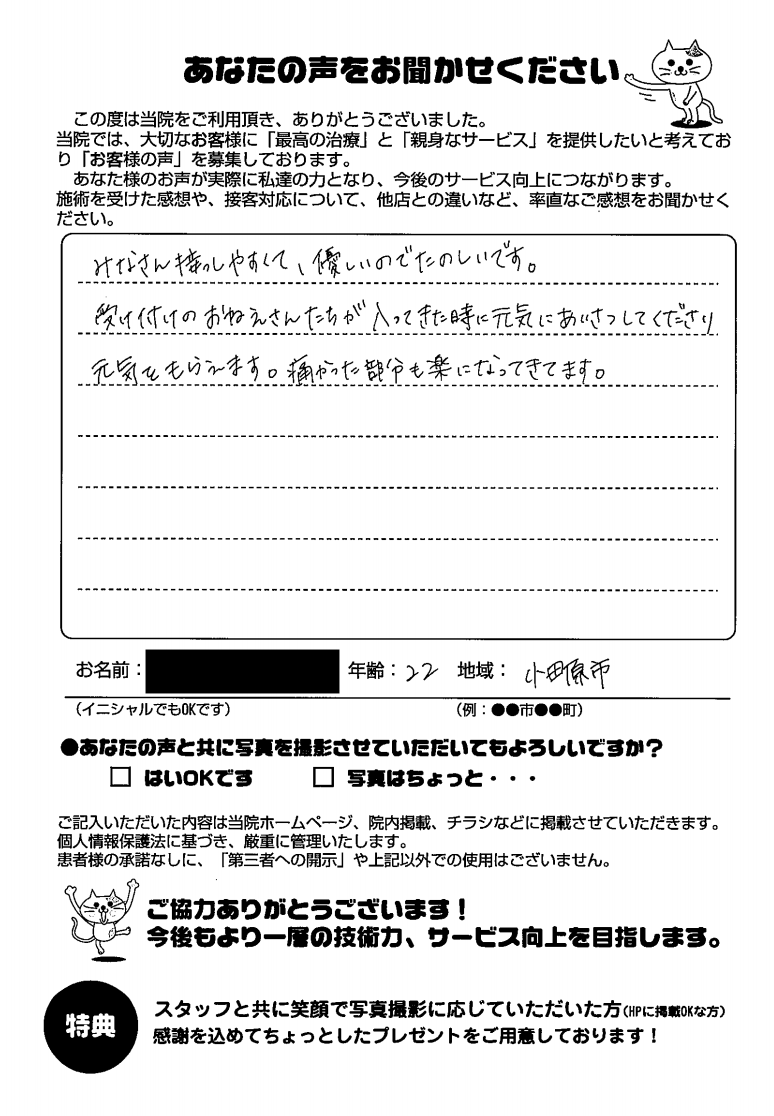 あなたの声をお聞かせください
この度は当院をご利用頂き、ありがとうございました。
当院では、大切なお客様に「最高の治療」と「親身なサービス」を提供したいと考えてお
り「お客様の声」を募集しております。
あなた様のお声が実際に私達の力となり、今後のサービス向上につながります。
施術を受けた感想や、接客対応について、他店との違いなど、率直なご感想をお聞かせく
ださい。
みなさん接っしやすくて、優しいのでたのしいです。
受け付けのおねえさんたちが入ってきた時に元気にあいさつしてくださり
元気をもらえます。痛かった部分も楽になってきてます。
お名前： 年齢：22 地域：小田原市
（イニシャルでもOKです） （例：●●市●●町）
●あなたの声と共に写真を撮影させていただいてもよろしいですか？
□ はいOKです □ 写真はちょっと・・・
ご記入いただいた内容は当院ホームページ、院内掲載、チラシなどに掲載させていただきます。
個人情報保護法に基づき、厳重に管理いたします。
患者様の承諾なしに、「第三者への開示」や上記以外での使用はございません。
ご協力ありがとうございます！
今後もより一層の技術力、サービス向上を目指します。
特典
スタッフと共に笑顔で写真撮影に応じていただいた方（HPに掲載OKな方）
感謝を込めてちょっとしたプレゼントをご用意しております！